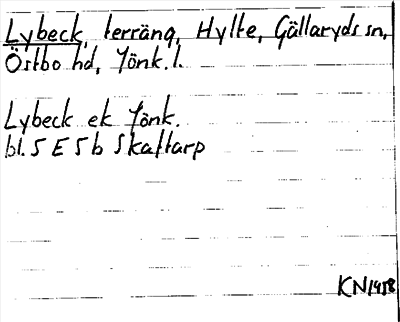 Lybeck, terräng, Hylte, Gällaryds sn,
Östbo hd, Jönk.l.
Lybeck ek Jönk.
bl. 5 E 5 b Skaftarp
KN 1958